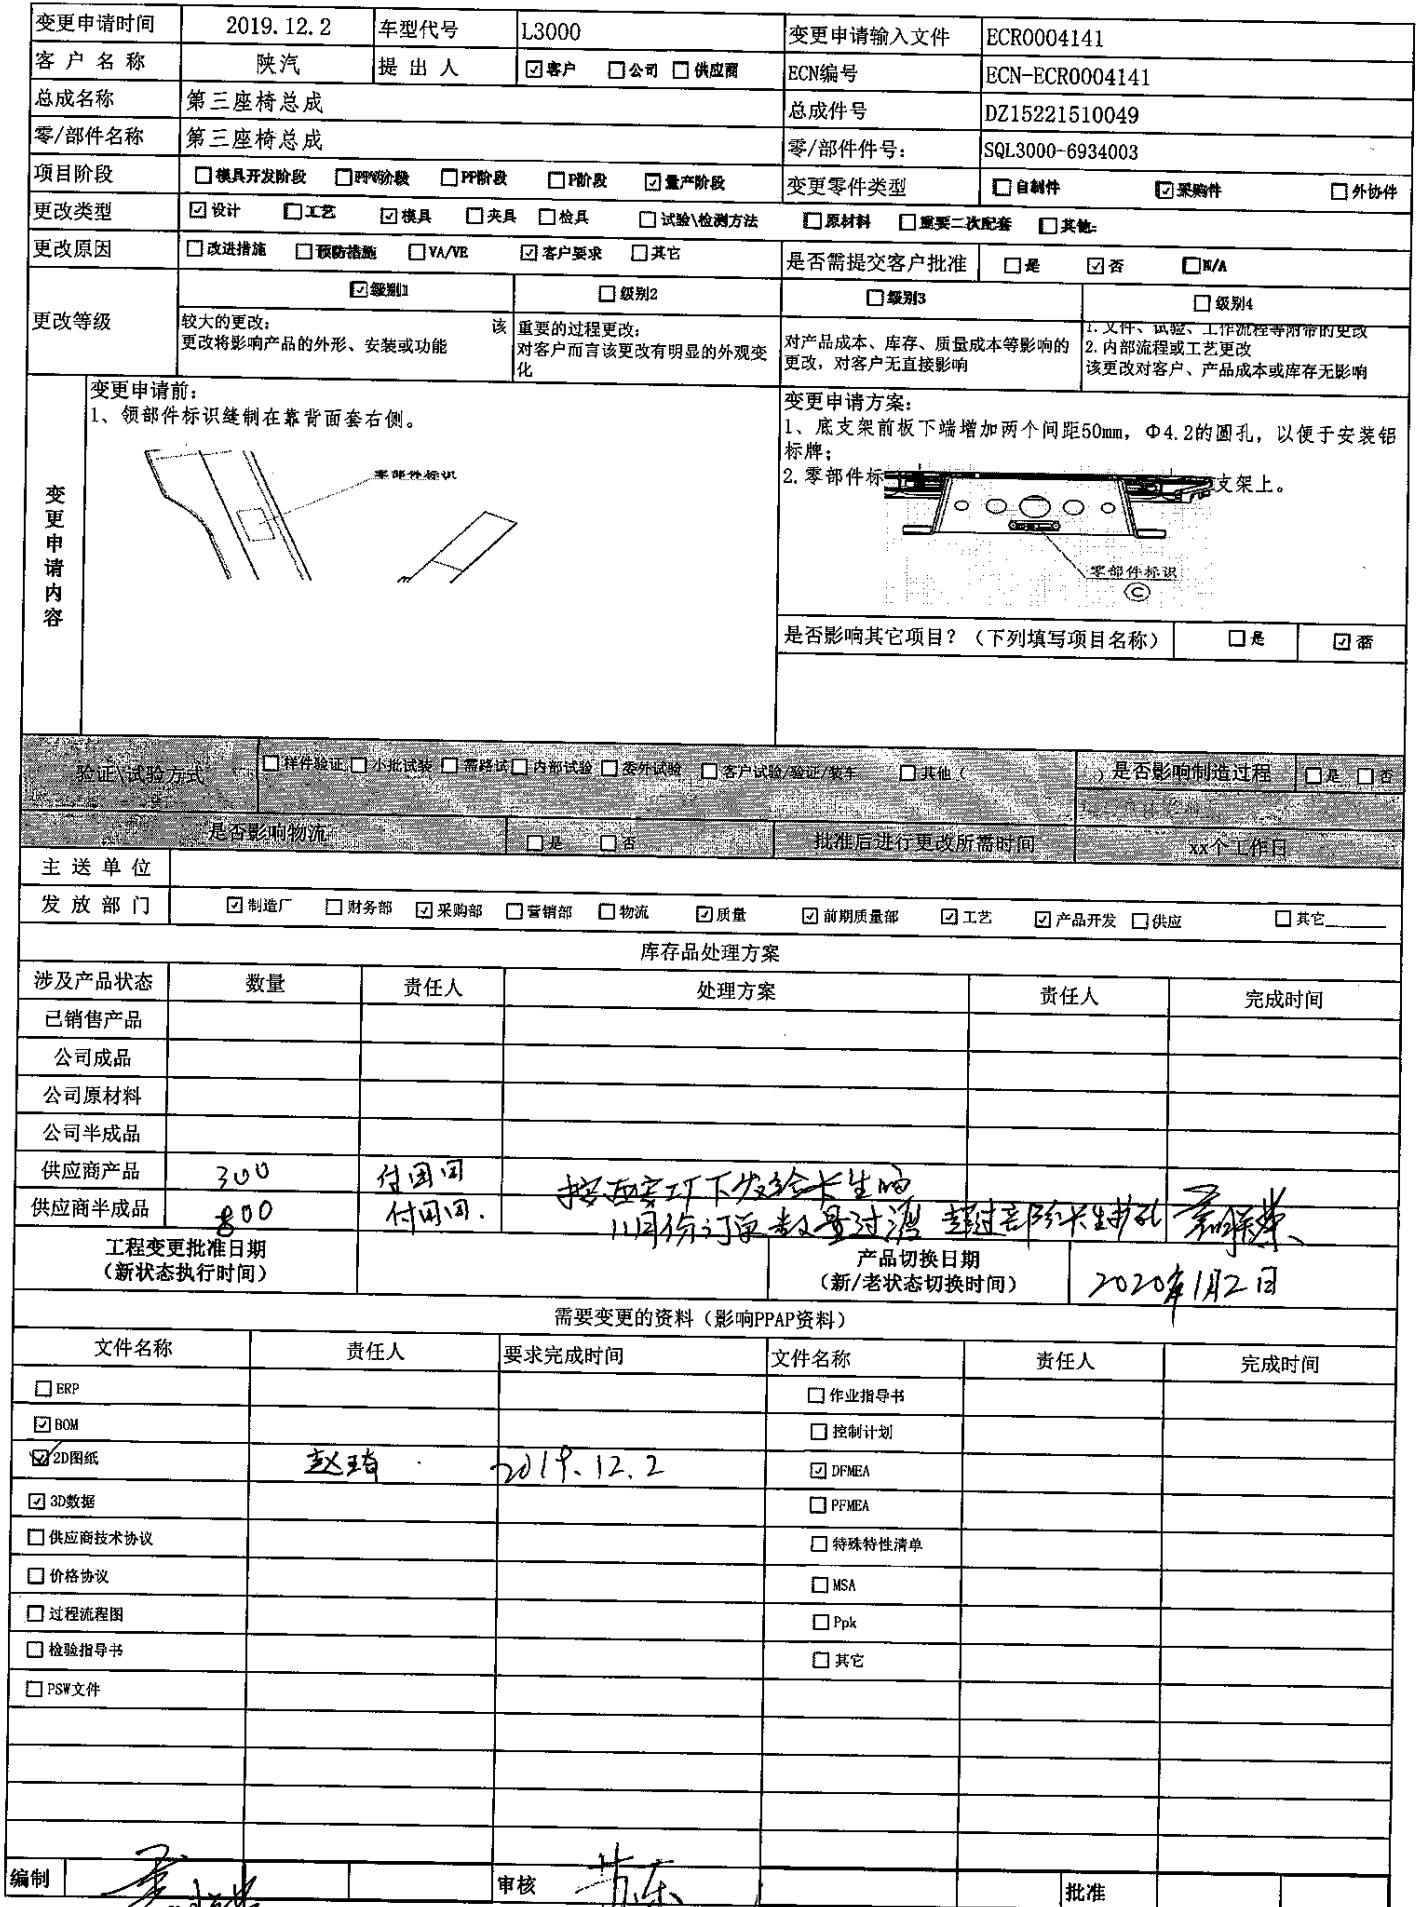 变更申请时间 2019.12.2 车型代号 L3000 变更申请输入文件 ECR0004141
客户名称 陕汽 提出人 ☑客户 □公司 □供应商 ECN编号 ECN-ECR0004141
总成名称 第三座椅总成 总成件号 DZ15221510049
零/部件名称 第三座椅总成 零/部件件号: SQL3000-6934003
项目阶段 □模具开发阶段 □PPV阶段 □PP阶段 □P阶段 ☑量产阶段 变更零件类型 □自制件 ☑采购件 □外协件
更改类型 ☑设计 □工艺 ☑模具 □夹具 □检具 □试验\检测方法 □原材料 □重要二次配套 □其他:
更改原因 □改进措施 □预防措施 □VA/VE ☑客户要求 □其它 是否需提交客户批准 □是 ☑否 □N/A
更改等级 ☑级别1 □级别2 □级别3 □级别4
较大的更改: 该
更改将影响产品的外形、安装或功能
重要的过程更改:
对客户而言该更改有明显的外观变
化
对产品成本、库存、质量成本等影响的
更改，对客户无直接影响
1. 文件、试验、工作流程等附带的更改
2. 内部流程或工艺更改
该更改对客户、产品成本或库存无影响
变更申请内容
变更申请前:
1、领部件标识缝制在靠背面套右侧。
零部件标识
变更申请方案:
1、底支架前板下端增加两个间距50mm，Φ4.2的圆孔，以便于安装铝
标牌;
2.零部件标 支架上。
零部件标识
C
是否影响其它项目？（下列填写项目名称） □是 ☑否
验证\试验方式 □样件验证 □小批试装 □需路试 □内部试验 □委外试验 □客户试验/验证/装车 □其他（ ） 是否影响制造过程 □是 □否
是否影响物流 □是 □否 批准后进行更改所需时间 xx个工作日
主送单位
发放部门 ☑制造厂 □财务部 ☑采购部 □营销部 □物流 ☑质量 ☑前期质量部 ☑工艺 ☑产品开发 □供应 □其它
库存品处理方案
涉及产品状态 数量 责任人 处理方案 责任人 完成时间
已销售产品
公司成品
公司原材料
公司半成品
供应商产品 300 付团团 按西安工厂下发给长生的
供应商半成品 800 付团团. 11月份订单数量过渡 超过部分长生扩孔
工程变更批准日期
（新状态执行时间）
产品切换日期
（新/老状态切换时间） 2020年1月2日
需要变更的资料（影响PPAP资料）
文件名称 责任人 要求完成时间 文件名称 责任人 完成时间
□ERP □作业指导书
☑BOM □控制计划
☑2D图纸 赵琦 2019.12.2 ☑DFMEA
☑3D数据 □PFMEA
□供应商技术协议 □特殊特性清单
□价格协议 □MSA
□过程流程图 □Ppk
□检验指导书 □其它
□PSW文件
编制 审核 批准